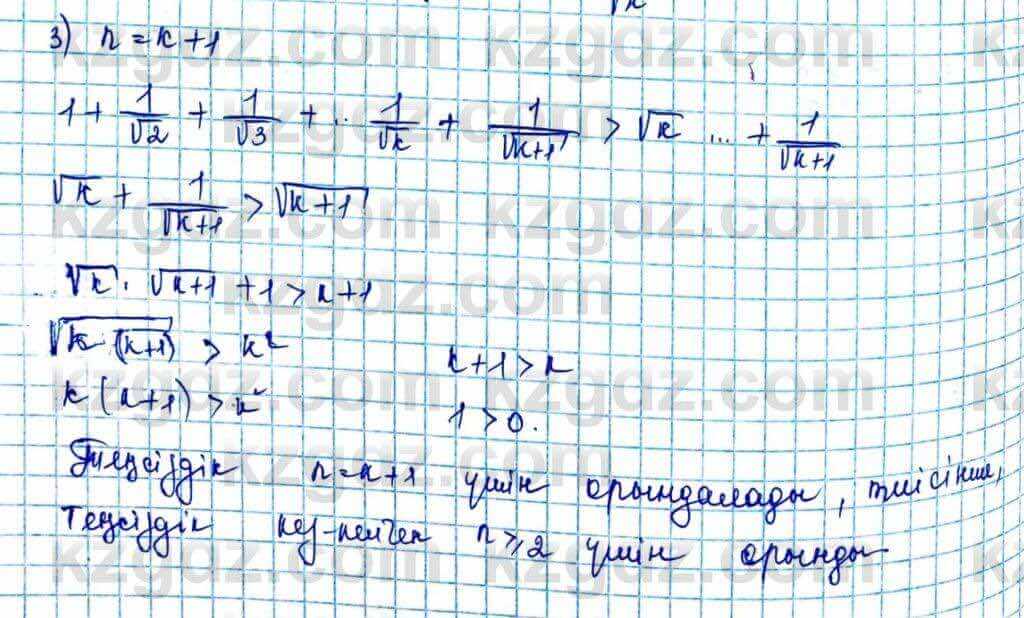 3) n = k + 1
1 + 1/√2 + 1/√3 + .. 1/√k + 1/√k+1 > √k ... + 1/√k+1
√k + 1/√k+1 > √k+1
√k · √k+1 + 1 > k+1
√k (k+1) > k² k+1 > k
k (k+1) > k² 1 > 0.
Теңсіздік n = k+1 үшін орындалады, тиісінше,
теңсіздік кез-келген n ⩾ 2 үшін орынды
kzgdz.com